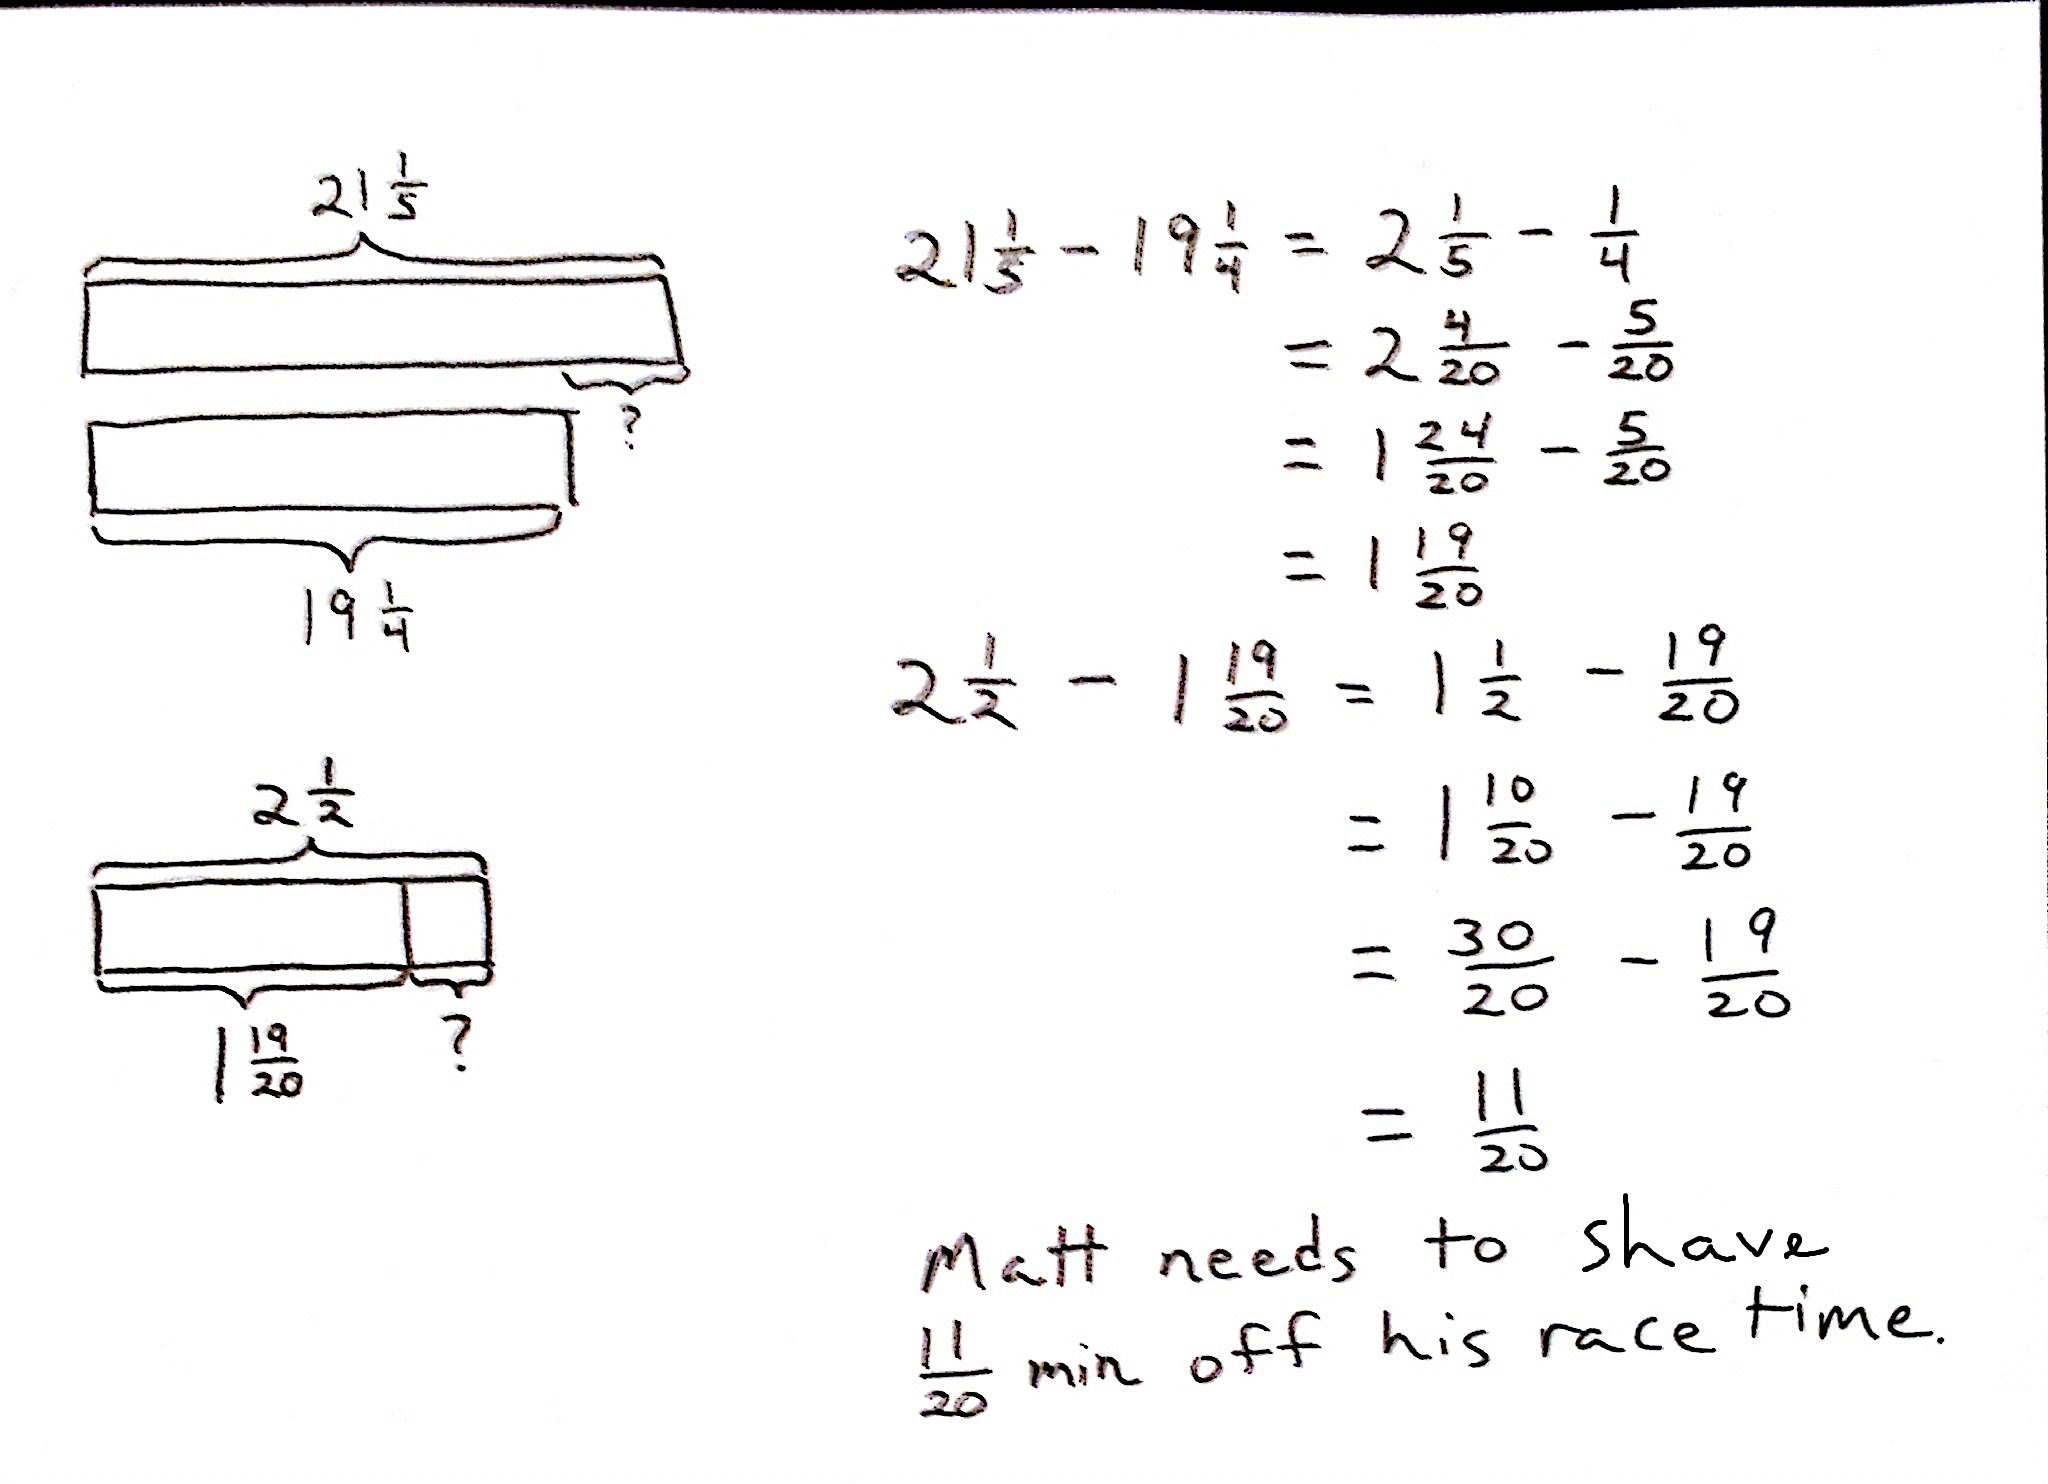 21 1/5
?
19 1/4
2 1/2
1 19/20 ?
21 1/5 - 19 1/4 = 2 1/5 - 1/4
= 2 4/20 - 5/20
= 1 24/20 - 5/20
= 1 19/20
2 1/2 - 1 19/20 = 1 1/2 - 19/20
= 1 10/20 - 19/20
= 30/20 - 19/20
= 11/20
Matt needs to shave
11/20 min off his race time.